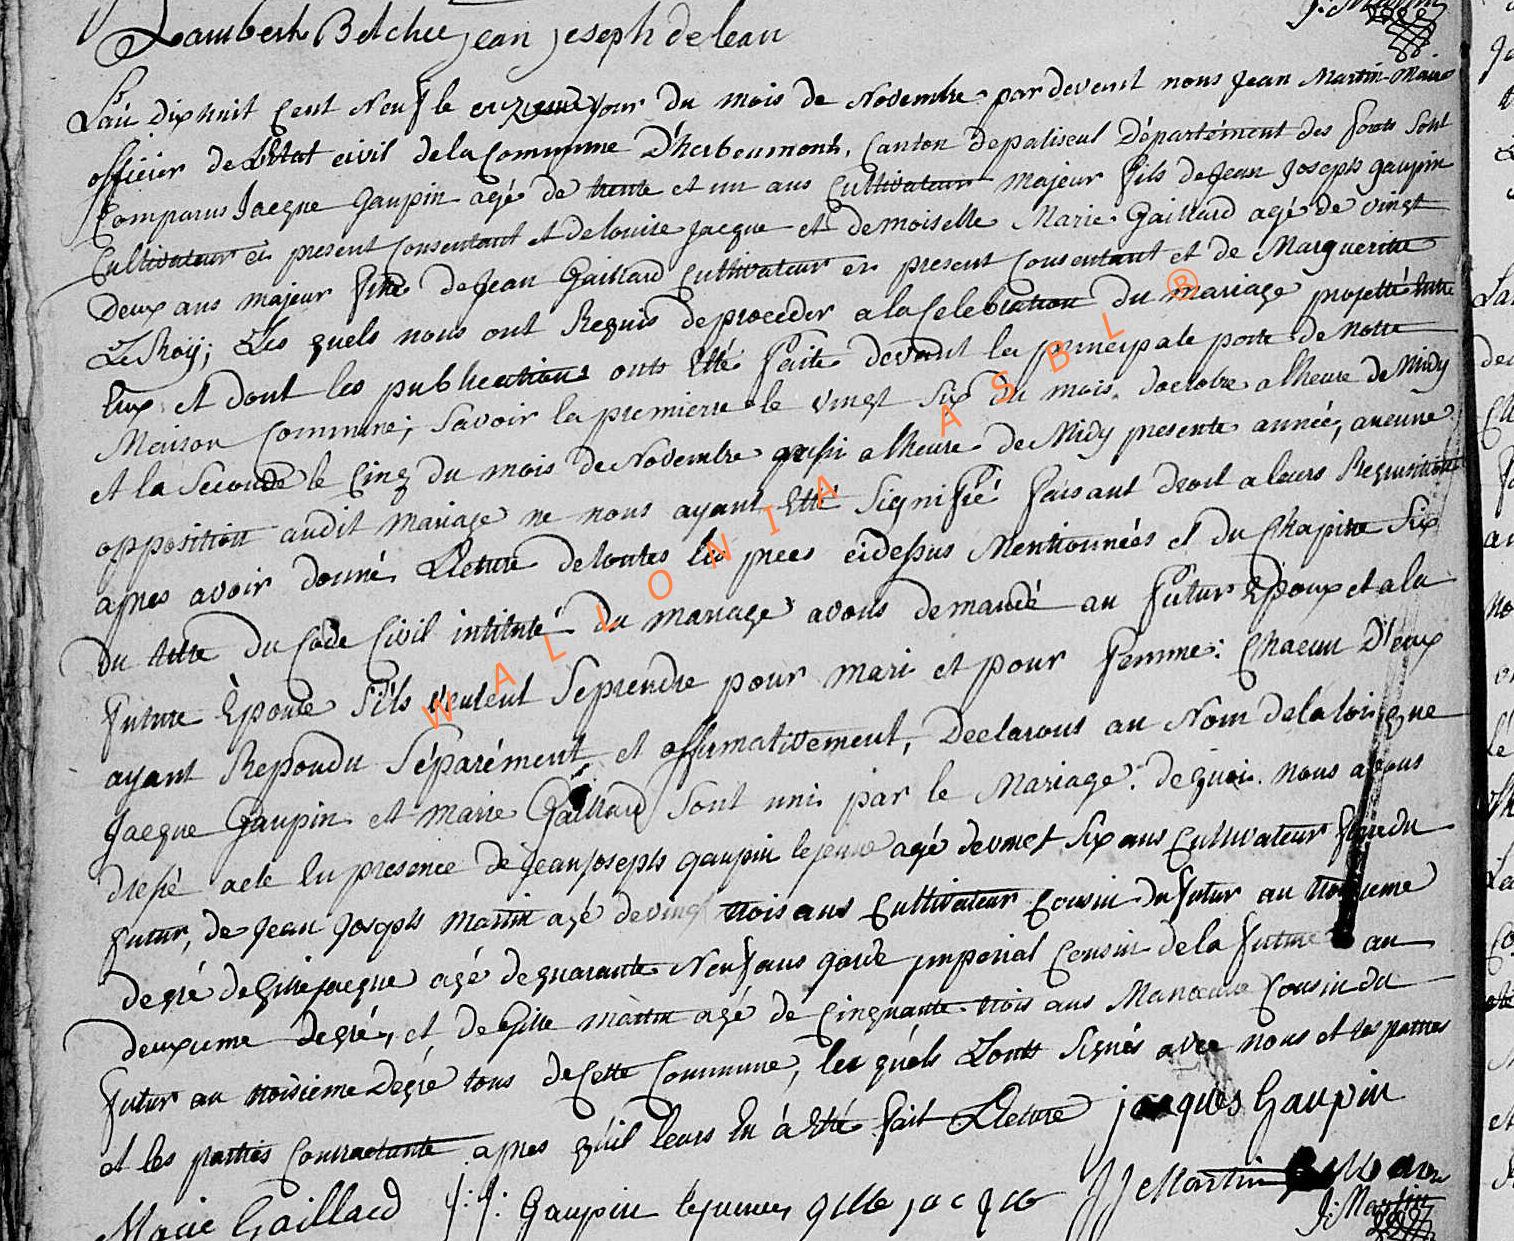 J: Martin
Lambert Bechee jean joseph deleau
L'an dix huit Cent Neuf le onzieme jour du mois de Novembre par devent nous Jean Martin Maire
officier de L'Etat civil de la Commune D'herbeumont, Canton de paliseul Département des forets sont
Comparus Jacque Gaupin agé de trente et un ans Cultivateur Majeur fils de Jean Joseph gaupin
Cultivateur ici present Consentant et de louise jacque et demoiselle Marie Gaillard agé de vingt
Deux ans majeur fille de Jean Gaillard Cultivateur ici present Consentant et de Marguerite
LeRoÿ; Les quels nous ont Requis de proceder a la Celebration du mariage projetté Entre
Eux et dont les publications onts Etté faite devant la principale porte de Notre
Maison Commune; savoir la premiere le vingt Six du mois d'octobre a lheure de Midy
et la Seconde le Cinq du mois de Novembre aussi a lheure de Midy presente année, aucune
opposition audit mariage ne nous ayant Etté Signifié faisant droit a leurs Requisition
apres avoir donné Lecture de toutes les pieces cidessus Mentionnées et du Chapitre Six
du titre du Code Civil intitulé du mariage avons demandé au futur Epoux et a la
future Epouse s'ils veulent Seprendre pour mari et pour femme: Chacun D'eux
ayant Repondu Séparément et affirmativement, Declarons au Nom de la loi que
Jacque Gaupin et marie Gaillard sont uni par le Mariage. de quoi nous avons
dressé acte En presence de jean joseph gaupin le jeune agé de vingt Six ans Cultivateur frere du
futur, de jean joseph Martin agé de vingt trois ans Cultivateur Cousin du futur au troisieme
degré de Gille jacque agé de quarante Neuf ans garde imperial Cousin de la future au
deuxieme degré, et de Gille Martin agé de Cinquante trois ans Manœuvre Cousin du
futur au troisième Degré tous de Cette Commune, les quéls Lonts Signés avec nous et les parties
et les parties Contractante apres qu'il leurs En à Eté fait Lecture jacques Gaupin
Marie Gaillard J: J: Gaupin le jeune, gille jacque JJ Martin
J: Martin
WALLONIA ASBL ®